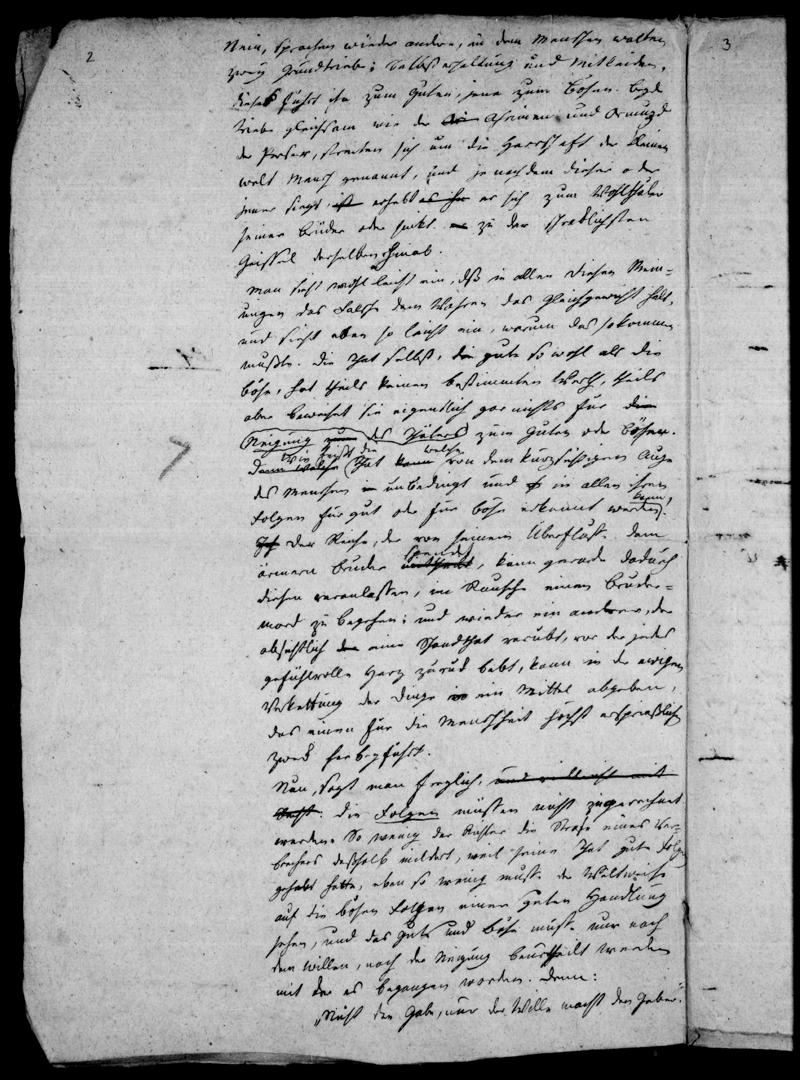 2
3
Nein, sprachen wieder andre, in dem Menschen walten
zwey Grundtriebe: Selbsterhaltung und Mitleiden,
dieses führt ihn zum Guten, jene zum Bösen. Beyde
Triebe gleichsam wie der Ahriman und Ormuzd
der Perser, streiten sich um die Herrschaft der kleinen
Welt Mensch genannt, und je nachdem dieser oder
jener siegt, erhebt er sich zum Wohlthäter
seiner Brüder oder sinkt zu der schrecklichsten
Geissel derselben hinab.
Man sieht wohl leicht ein, daß in allen diesen Mein-
ungen das Falsche dem Wahren das Gleichgewicht hält,
und sieht eben so leicht ein, warum das so kommen
mußte. Die That selbst, die gute so wohl als die
böse, hat theils keinen bestimmten Werth, theils
aber beweiset sie eigentlich gar nichts für die
Neigung des Thäters zum Guten oder Bösen.
Denn welche That kann von dem kurzsichtigen Auge
des Menschen unbedingt und in allen ihren
Folgen für gut oder für böse erkannt werden kann,
Der Reiche, der von seinem Überfluß dem
ärmern Bruder spendet, kann gerade dadurch
diesen veranlassen, im Rausche einen Bruder-
mord zu begehen; und wieder ein anderer, der
absichtlich eine Schandthat verübt, vor der jedes
gefühlvolle Herz zurück bebt, kann in der ewigen
Verkettung der Dinge ein Mittel abgeben,
das einen für die Menschheit höchst ersprießlichen
Zweck herbeyführt.
Nun, sagt man freylich, und vielleicht mit
Recht. die Folgen müssen nicht zugerechnet
werden. So wenig der Richter die Strafe eines Ver-
brechers deßhalb mildert, weil seine That gute Folgen
gehabt hatte, eben so wenig muß der Weltweise
auf die bösen Folgen einer guten Handlung
sehen, und das Gute und Böse muß nur nach
dem Willen, nach der Neigung beurtheilt werden
mit der es begangen worden. Denn:
„Nicht die Gabe, nur der Wille macht den Geber."